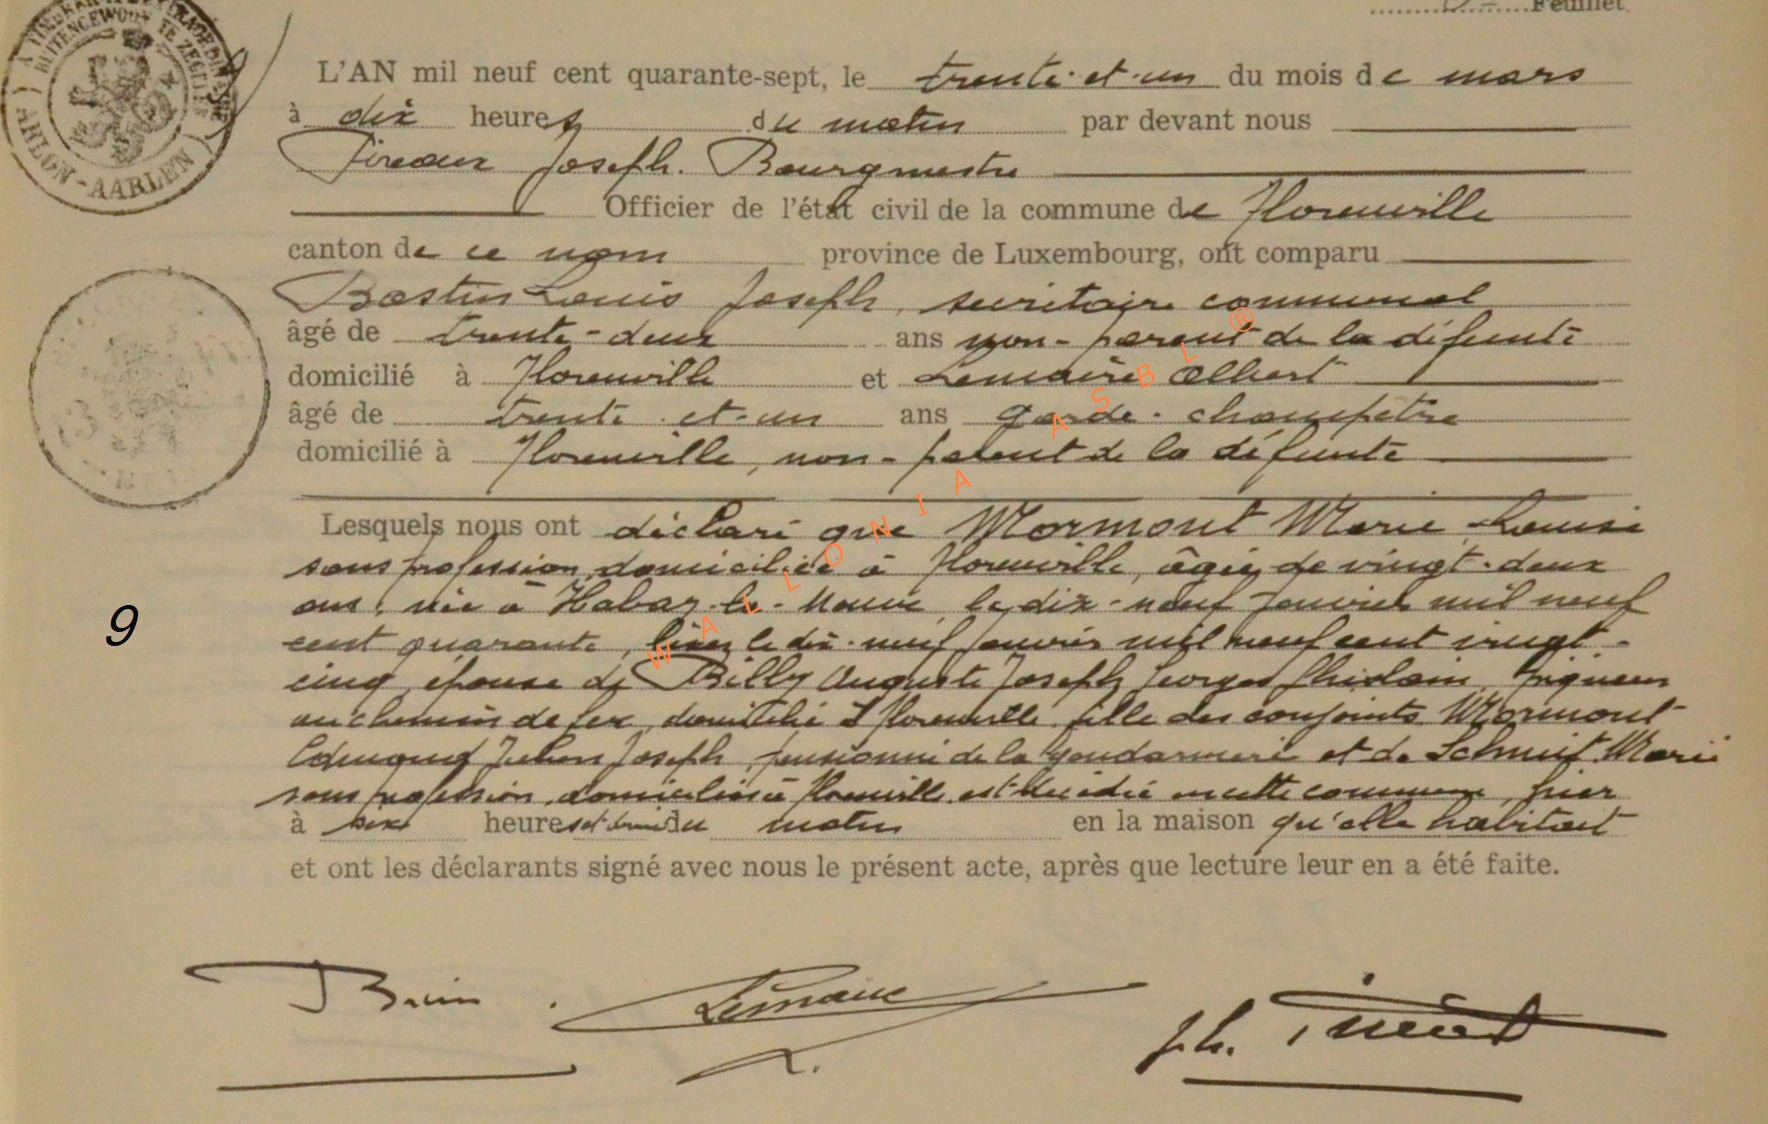 Feuillet.
L'AN mil neuf cent quarante-sept, le trente-et-un du mois de mars
à dix heures du matin par devant nous
Pireaux Joseph. Bourgmestre
Officier de l'état civil de la commune de Florenville
canton de ce nom province de Luxembourg, ont comparu
Bastin Louis Joseph, secrétaire communal
âgé de trente-deux ans non-parent de la défunte
domicilié à Florenville et Lemaire Albert
âgé de trente-et-un ans garde-champêtre
domicilié à Florenville, non-parent de la défunte
Lesquels nous ont déclaré que Mormont Marie Louise
sans profession, domiciliée à Florenville, âgée de vingt-deux
ans, née à Habay-la-Neuve, le dix-neuf janvier mil neuf
cent quarante, lisez le dix-neuf janvier mil neuf cent vingt-
9
cinq, épouse de Billy Auguste Joseph Georges Ghislain, piqueur
au chemin de fer, domicilié à Florenville, fille des conjoints Mormont
Edmond Julien Joseph, pensionné de la gendarmerie et de Schmit Marie
sans profession, domiciliés à Florenville, est décédée en cette commune, hier
à six heures et demie du matin en la maison qu'elle habitait
et ont les déclarants signé avec nous le présent acte, après que lecture leur en a été faite.
Lemaire
A.
Jh.
ARLON-AARLEN
WALLONIA ASBL ®